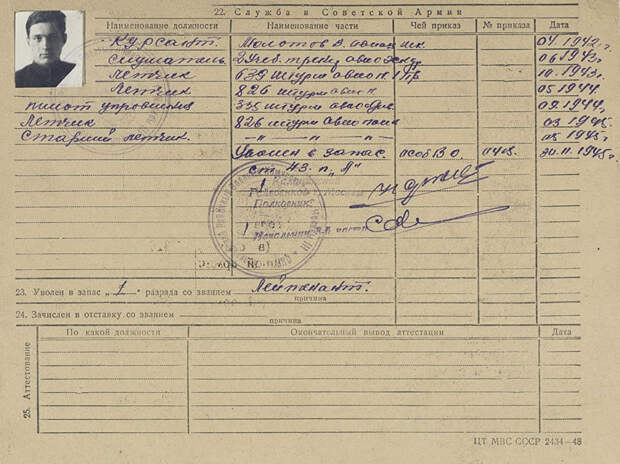 22. Служба в Советской Армии
Наименование должности Наименование части Чей приказ № приказа Дата
Курсант. Молотов В. авиа 04 1942г.
Слушатель 06 1943г.
Летчик 639 штурм авиоп 10.1943г.
Летчик 826 штурм авиоп 05 1944.
пилот управления 335 штурм 09 1944.
Летчик 826 штурм авиополк 03 1945.
Старший летчик. — " — " — " — 05 1945г.
Уволен в запас. особВО. 20.11 1945г.
ст 43. п „А"
Полковник
23. Уволен в запас „1" разряда со званием Лейтенант.
причина
24. Зачислен в отставку со званием
причина
25. Аттестование
По какой должности Окончательный вывод аттестации Дата
ЦТ МВС СССР 2434—48